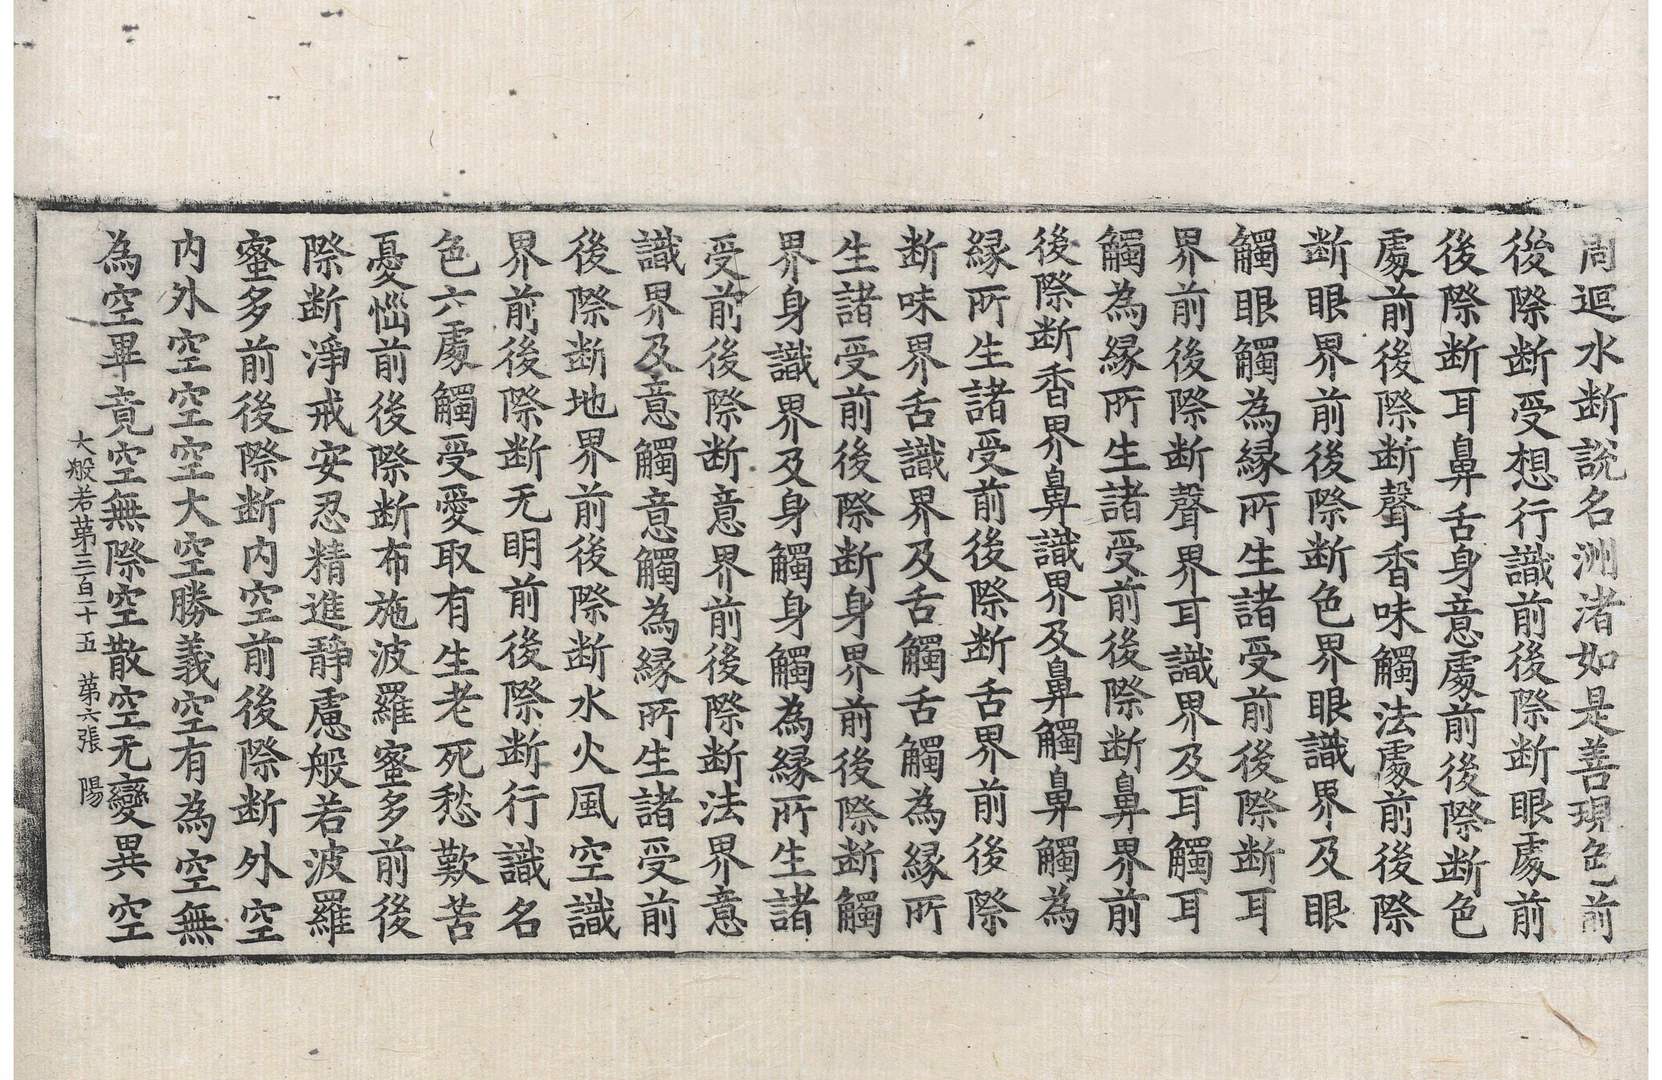 周迴水断說名洲渚如是善現色前
後際断受想行識前後際断眼處前
後際断耳鼻舌身意處前後際断色
處前後際断聲香味觸法處前後際
断眼界前後際断色界眼識界及眼
觸眼觸為縁所生諸受前後際断耳
界前後際断聲界耳識界及耳觸耳
觸為縁所生諸受前後際断鼻界前
後際断香界鼻識界及鼻觸鼻觸為
縁所生諸受前後際断舌界前後際
断味界舌識界及舌觸舌觸為縁所
生諸受前後際断身界前後際断觸
界身識界及身觸身觸為縁所生諸
受前後際断意界前後際断法界意
識界及意觸意觸為縁所生諸受前
後際断地界前後際断水火風空識
界前後際断无明前後際断行識名
色六處觸受愛取有生老死愁歎苦
憂惱前後際断布施波羅蜜多前後
際断淨戒安忍精進靜慮般若波羅
蜜多前後際断内空前後際断外空
内外空空空大空勝義空有為空無
為空畢竟空無際空散空无變異空
大般若苐三百二十五　苐六張　陽